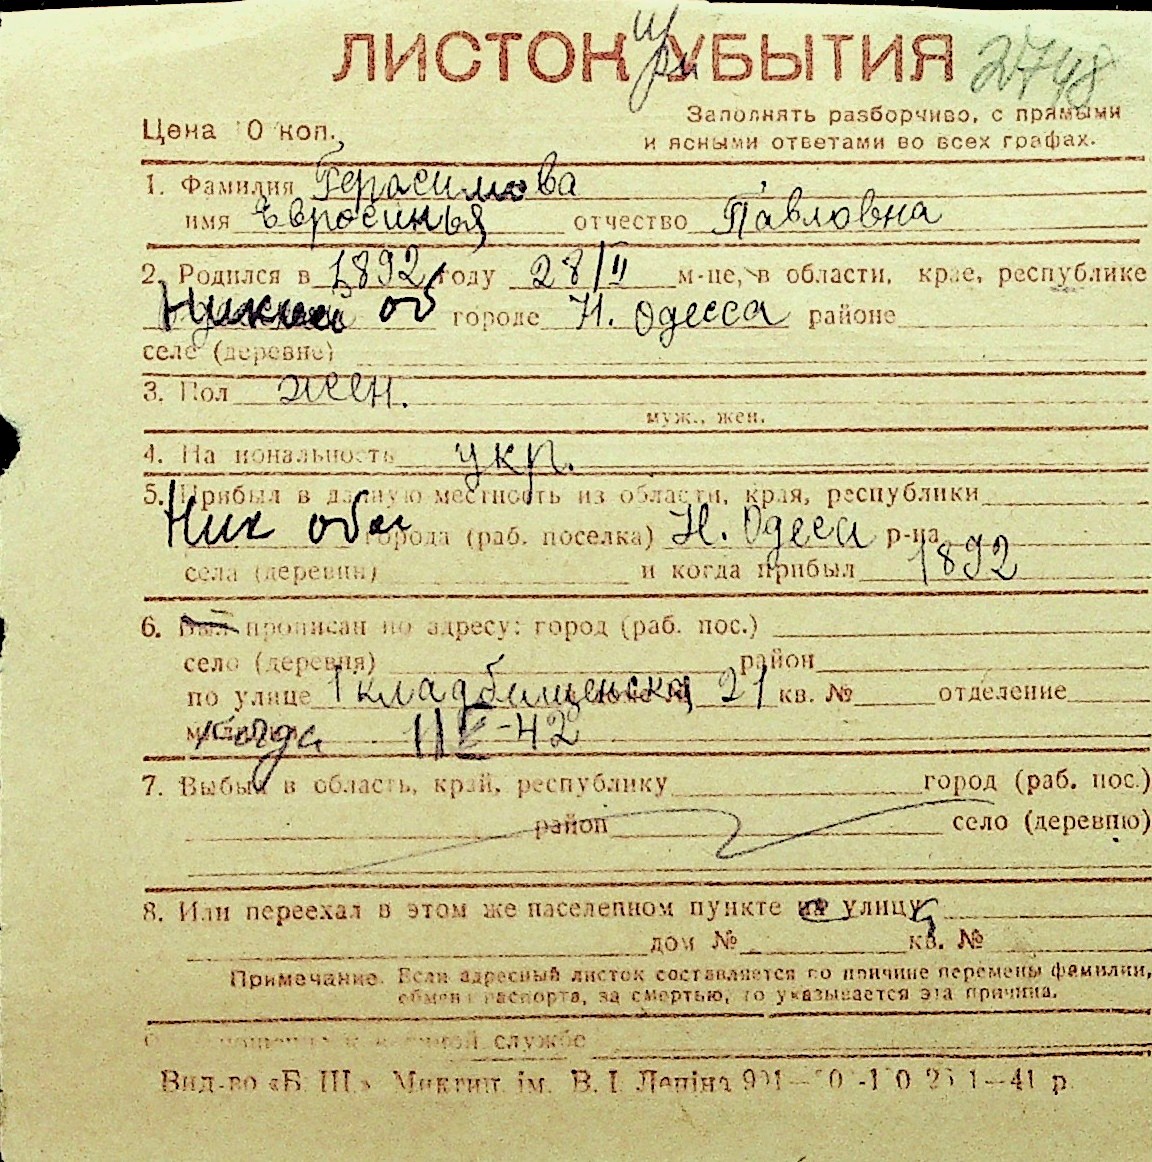 ЛИСТОК при УБЫТИЯ 2748
Цена 10 коп.
Заполнять разборчиво, с прямыми
и ясными ответами во всех графах.
1. Фамилия Герасимова
имя Евросинья отчество Павловна
2. Родился в 1892 году 28/II м-це, в области, крае, республике
об городе Н. Одесса районе
селе (деревне)
3. Пол жен.
муж., жен.
4. Национальность укр.
5. Прибыл в данную местность из области, края, республики
Ник обл города (раб. поселка) Н. Одеси р-на
села (деревни) и когда прибыл 1892
6. Был прописан по адресу: город (раб. пос.)
село (деревня) район
по улице 1 кладбищенска доме № 21 кв. № отделение
когда -42
7. Выбыл в область, край, республику город (раб. пос.)
район село (деревню)
8. Или переехал в этом же населенном пункте на улицу
дом № кв. №
Примечание. Если адресный листок составляется по причине перемены фамилии,
обмена паспорта, за смертью, то указывается эта причина.
службе
Вид-во «Б. Ш.» Миктип. ім. В. І. Леніна 1—41 р.